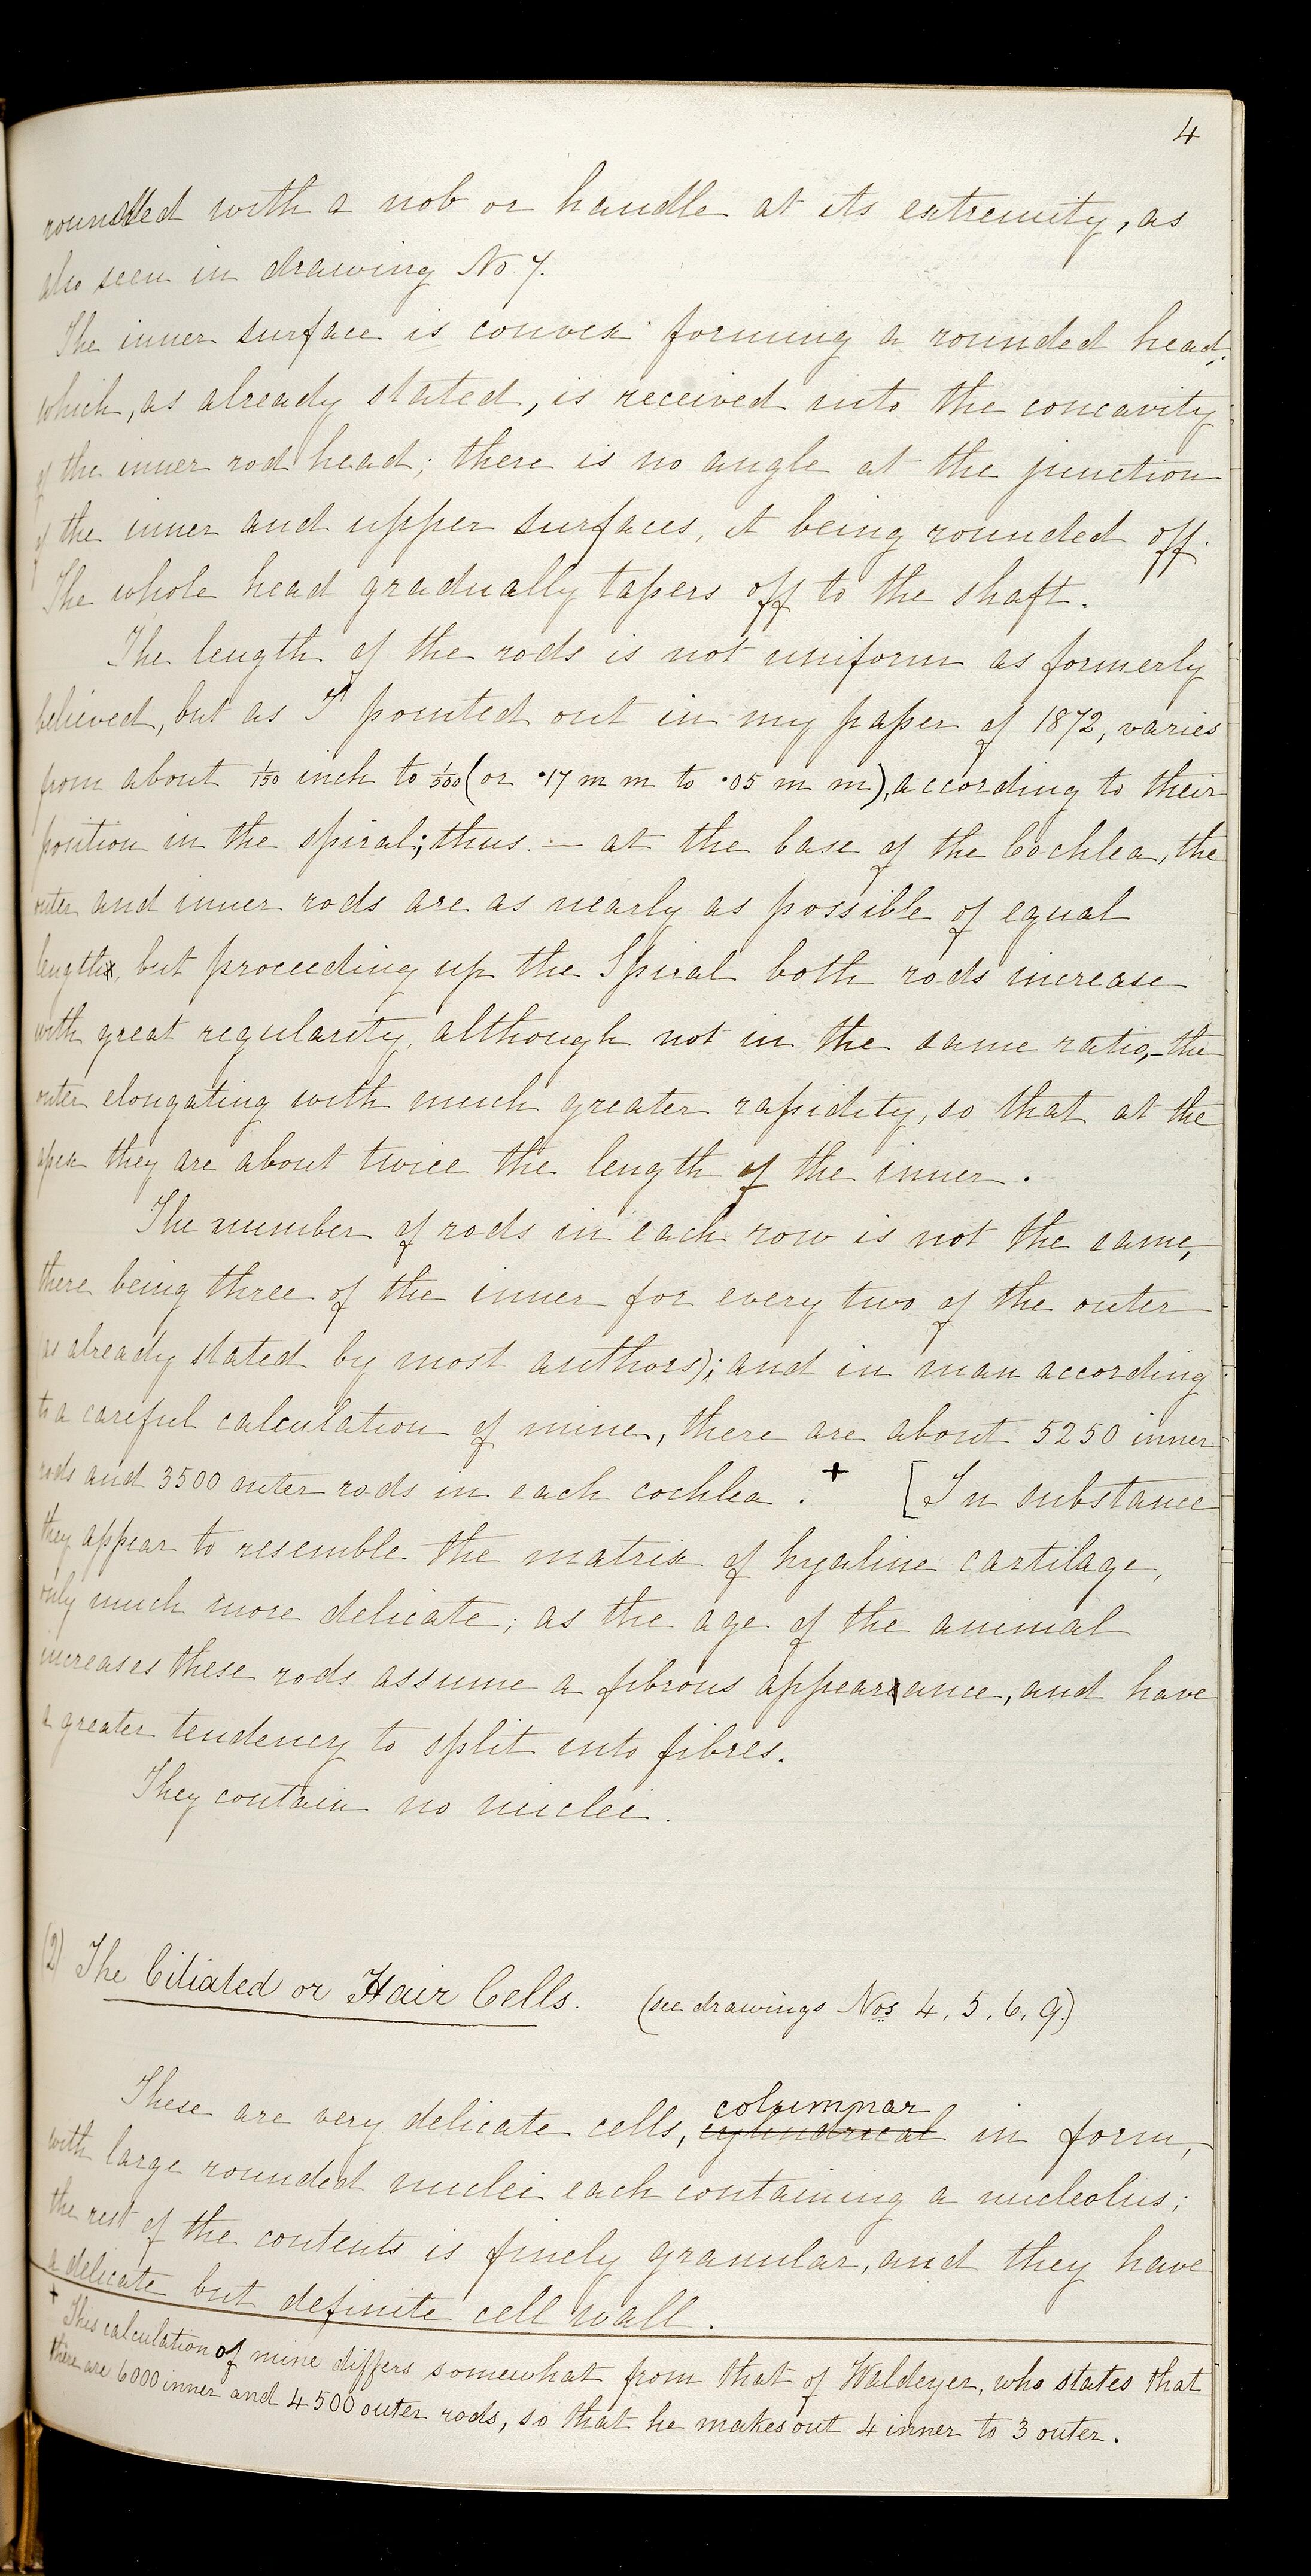 4
rounded with a nob or handle at its extremity, as
also seen in drawing No 7.
The inner surface is convex forming a rounded head,
which, as already stated, is received into the concavity
of the inner rod head; there is no angle at the junction
of the inner and upper surfaces, it being rounded off.
The whole head gradually tapers off to the shaft.
The length of the rods is not uniform as formerly
believed, but as I pointed out in my paper of 1872, varies
from about 1/150 inch to 1/500 (or ·17 m m to ·05 m m), according to their
position in the spiral; thus. — at the base of the Cochlea, the
outer and inner rods are as nearly as possible of equal
length, but proceeding up the Spiral both rods increase
with great regularity, although not in the same ratio,— the
outer elongating with much greater rapidity, so that at the
apex they are about twice the length of the inner.
The number of rods in each row is not the same,
there being three of the inner for every two of the outer
(as already stated by most authors); and in man according
to a careful calculation of mine, there are about 5250 inner
rods and 3500 outer rods in each cochlea. + [In substance
they appear to resemble the matrix of hyaline cartilage,
only much more delicate; as the age of the animal
increases these rods assume a fibrous appearance, and have
a greater tendency to split into fibres.
They contain no nuclei.
(2) The Ciliated or Hair Cells. (see drawings Nos 4, 5, 6, 9.)
columnar
These are very delicate cells, cylindrical in form,
with large rounded nuclei each containing a nucleolus;
the rest of the contents is finely granular, and they have
a delicate but definite cell wall.
+ This calculation of mine differs somewhat from that of Waldeyer, who states that
there are 6000 inner and 4500 outer rods, so that he makes out 4 inner to 3 outer.